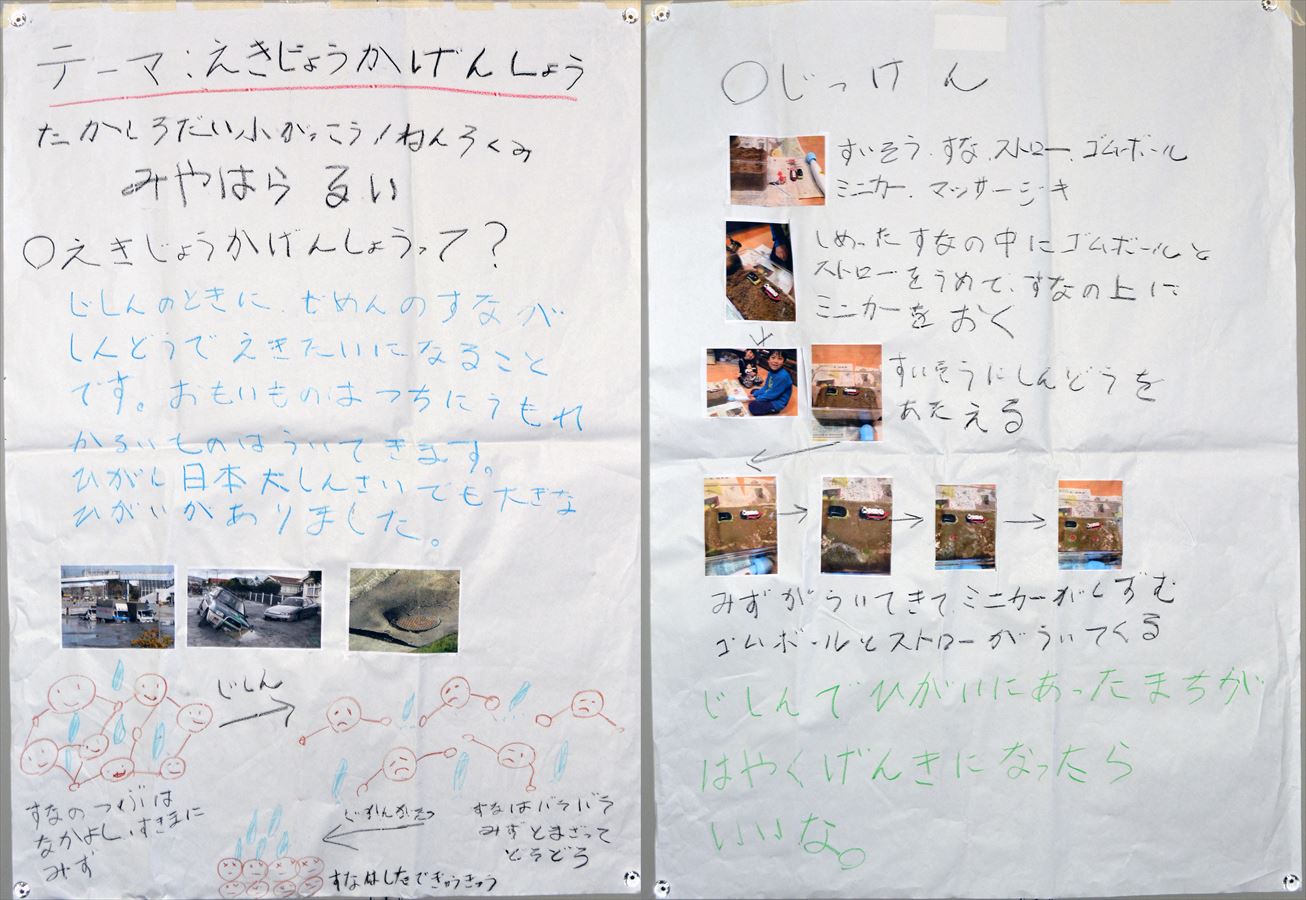 テーマ:えきじょうかげんしょう
たかしろだい小がっこう1ねんろくみ
みやはら るい
○えきじょうかげんしょうって?
じしんのときに、ぜめんのすなが
しんどうでえきたいになること
です。おもいものはつちにうもれ
かるいものはういてきます。
ひがし日本大しんさいでも大きな
ひがいがありました。
じしん
すなのつぶは
なかよし、すきまに
みず
すなはバラバラ
みずとまざって
どろどろ
じかんがたつ
すなはしたでぎゅうぎゅう
○じっけん
すいそう、すな、ストロー、ゴムボール
ミニカー、マッサージき
しめったすなの中にゴムボールと
ストローをうめて、すなの上に
ミニカーをおく
すいそうにしんどうを
あたえる
みずがういてきて、ミニカーがしずむ
ゴムボールとストローがういてくる
じしんでひがいにあったまちが
はやくげんきになったら
いいな。